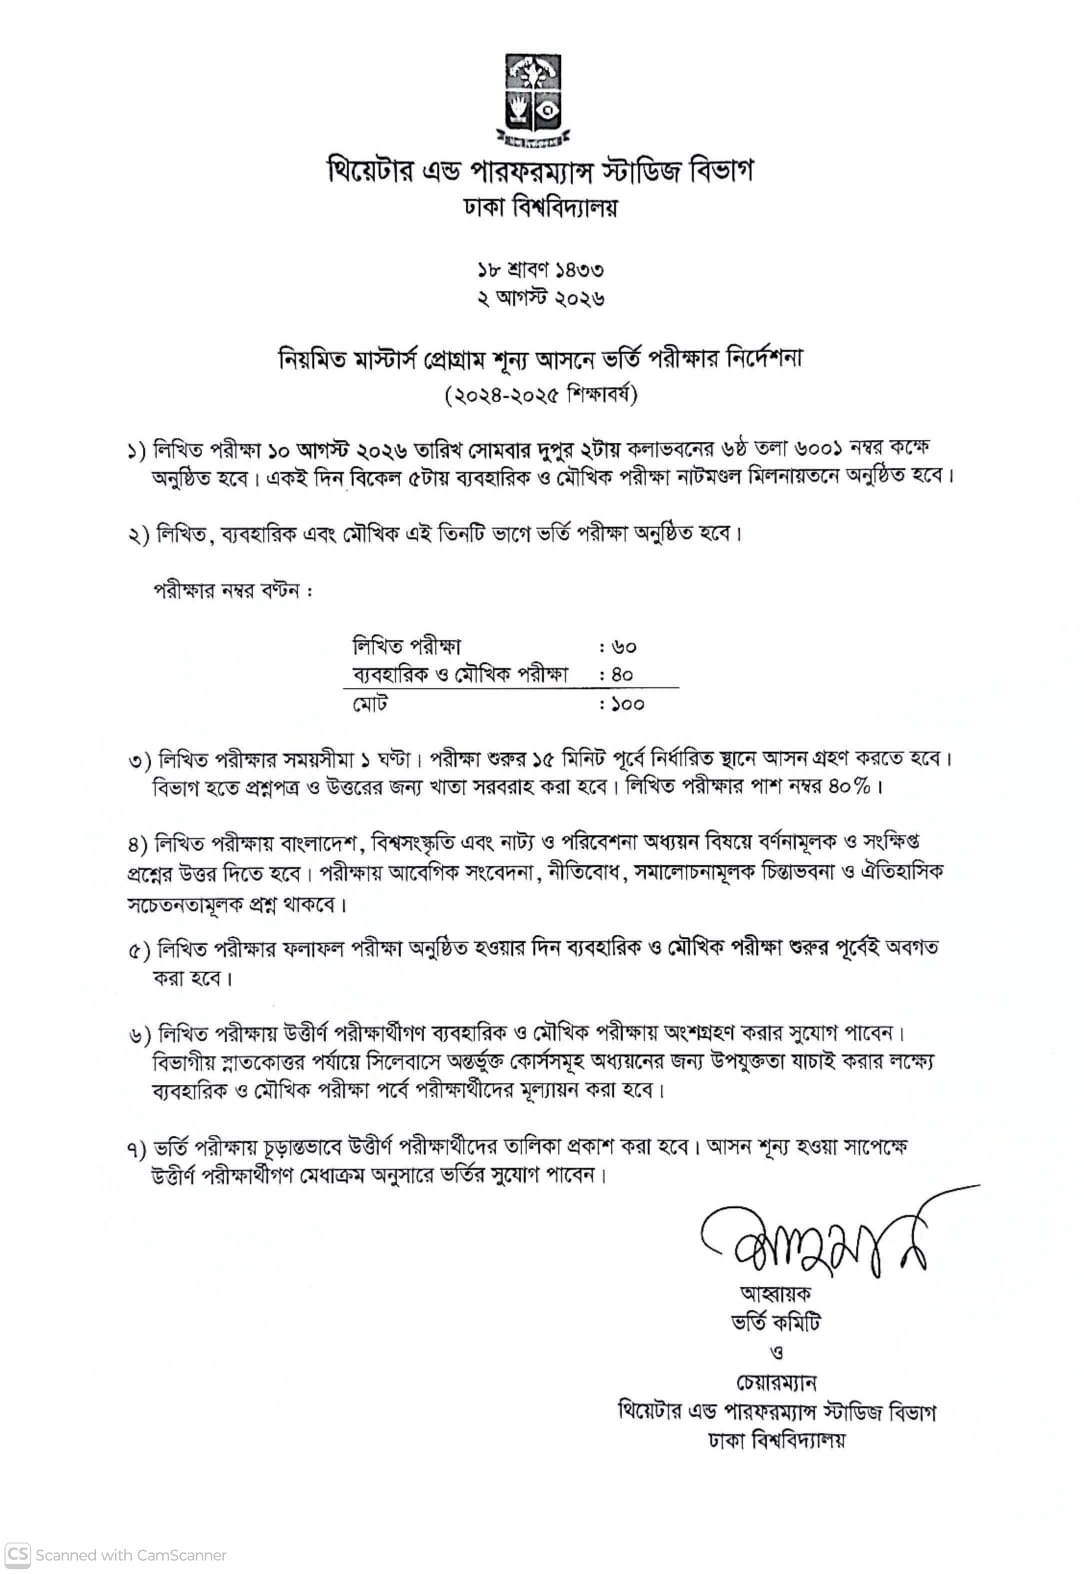 থিয়েটার এন্ড পারফরম্যান্স স্টাডিজ বিভাগ
ঢাকা বিশ্ববিদ্যালয়
১৮ শ্রাবণ ১৪৩৩
২ আগস্ট ২০২৬
নিয়মিত মাস্টার্স প্রোগ্রাম শূন্য আসনে ভর্তি পরীক্ষার নির্দেশনা
(২০২৪-২০২৫ শিক্ষাবর্ষ)
১) লিখিত পরীক্ষা ১০ আগস্ট ২০২৬ তারিখ সোমবার দুপুর ২টায় কলাভবনের ৬ষ্ঠ তলা ৬০০১ নম্বর কক্ষে
অনুষ্ঠিত হবে। একই দিন বিকেল ৫টায় ব্যবহারিক ও মৌখিক পরীক্ষা নাটমণ্ডল মিলনায়তনে অনুষ্ঠিত হবে।
২) লিখিত, ব্যবহারিক এবং মৌখিক এই তিনটি ভাগে ভর্তি পরীক্ষা অনুষ্ঠিত হবে।
পরীক্ষার নম্বর বণ্টন :
লিখিত পরীক্ষা : ৬০
ব্যবহারিক ও মৌখিক পরীক্ষা : ৪০
মোট : ১০০
৩) লিখিত পরীক্ষার সময়সীমা ১ ঘণ্টা। পরীক্ষা শুরুর ১৫ মিনিট পূর্বে নির্ধারিত স্থানে আসন গ্রহণ করতে হবে।
বিভাগ হতে প্রশ্নপত্র ও উত্তরের জন্য খাতা সরবরাহ করা হবে। লিখিত পরীক্ষার পাশ নম্বর ৪০%।
৪) লিখিত পরীক্ষায় বাংলাদেশ, বিশ্বসংস্কৃতি এবং নাট্য ও পরিবেশনা অধ্যয়ন বিষয়ে বর্ণনামূলক ও সংক্ষিপ্ত
প্রশ্নের উত্তর দিতে হবে। পরীক্ষায় আবেগিক সংবেদনা, নীতিবোধ, সমালোচনামূলক চিন্তাভবনা ও ঐতিহাসিক
সচেতনতামূলক প্রশ্ন থাকবে।
৫) লিখিত পরীক্ষার ফলাফল পরীক্ষা অনুষ্ঠিত হওয়ার দিন ব্যবহারিক ও মৌখিক পরীক্ষা শুরুর পূর্বেই অবগত
করা হবে।
৬) লিখিত পরীক্ষায় উত্তীর্ণ পরীক্ষার্থীগণ ব্যবহারিক ও মৌখিক পরীক্ষায় অংশগ্রহণ করার সুযোগ পাবেন।
বিভাগীয় স্নাতকোত্তর পর্যায়ে সিলেবাসে অন্তর্ভুক্ত কোর্সসমূহ অধ্যয়নের জন্য উপযুক্ততা যাচাই করার লক্ষ্যে
ব্যবহারিক ও মৌখিক পরীক্ষা পর্বে পরীক্ষার্থীদের মূল্যায়ন করা হবে।
৭) ভর্তি পরীক্ষায় চূড়ান্তভাবে উত্তীর্ণ পরীক্ষার্থীদের তালিকা প্রকাশ করা হবে। আসন শূন্য হওয়া সাপেক্ষে
উত্তীর্ণ পরীক্ষার্থীগণ মেধাক্রম অনুসারে ভর্তির সুযোগ পাবেন।
আহ্বায়ক
ভর্তি কমিটি
ও
চেয়ারম্যান
থিয়েটার এন্ড পারফরম্যান্স স্টাডিজ বিভাগ
ঢাকা বিশ্ববিদ্যালয়
CS Scanned with CamScanner